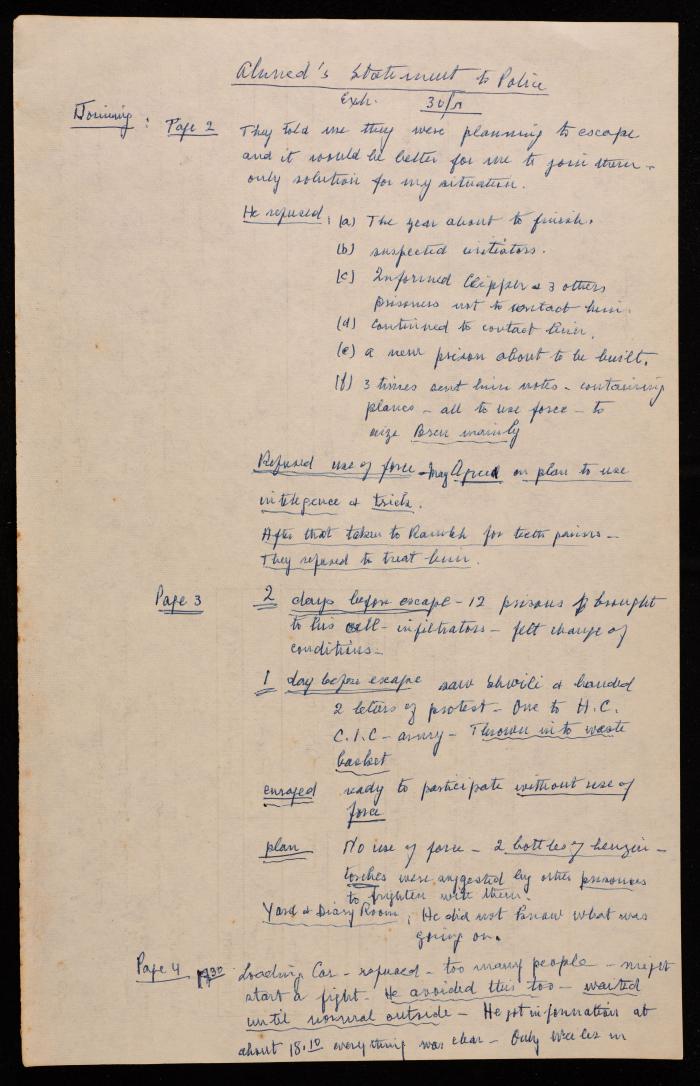 Ahmed's Statement to Police
Exh. 30/
Joining : Page 2 They told me they were planning to escape
and it would be better for me to join them -
only solution for my situation.
He refused : (a) The year about to finish.
(b) suspected initiators.
(c) Informed & 3 others
prisoners not to contact him.
(d) continued to contact him.
(e) a new prison about to be built.
(f) 3 times sent him notes - containing
planes - all to use force - to
seize Bren mainly
Refused use of force - may Agreed on plan to use
intelegence & trick.
After that taken to Ramleh for teeth pains -
They refused to treat him.
Page 3 2 days before escape - 12 prisons brought
to his cell - infiltrators - felt change of
conditions -
1 day before escape saw & handed
2 letters of protest - One to H.C.
C.I.C - army - Thrown into waste
basket
enraged ready to participate without use of
force
plan No use of force - 2 bottles of benzin -
torches were suggested by other prisoners
to frighten with them.
Yard & Room ; He did not know what was
going on.
Page 4 17 30 Loading Car - refused - too many people - might
start a fight. He avoided this too - waited
until normal outside - He got information at
about 18.10 everything was clear - Only in